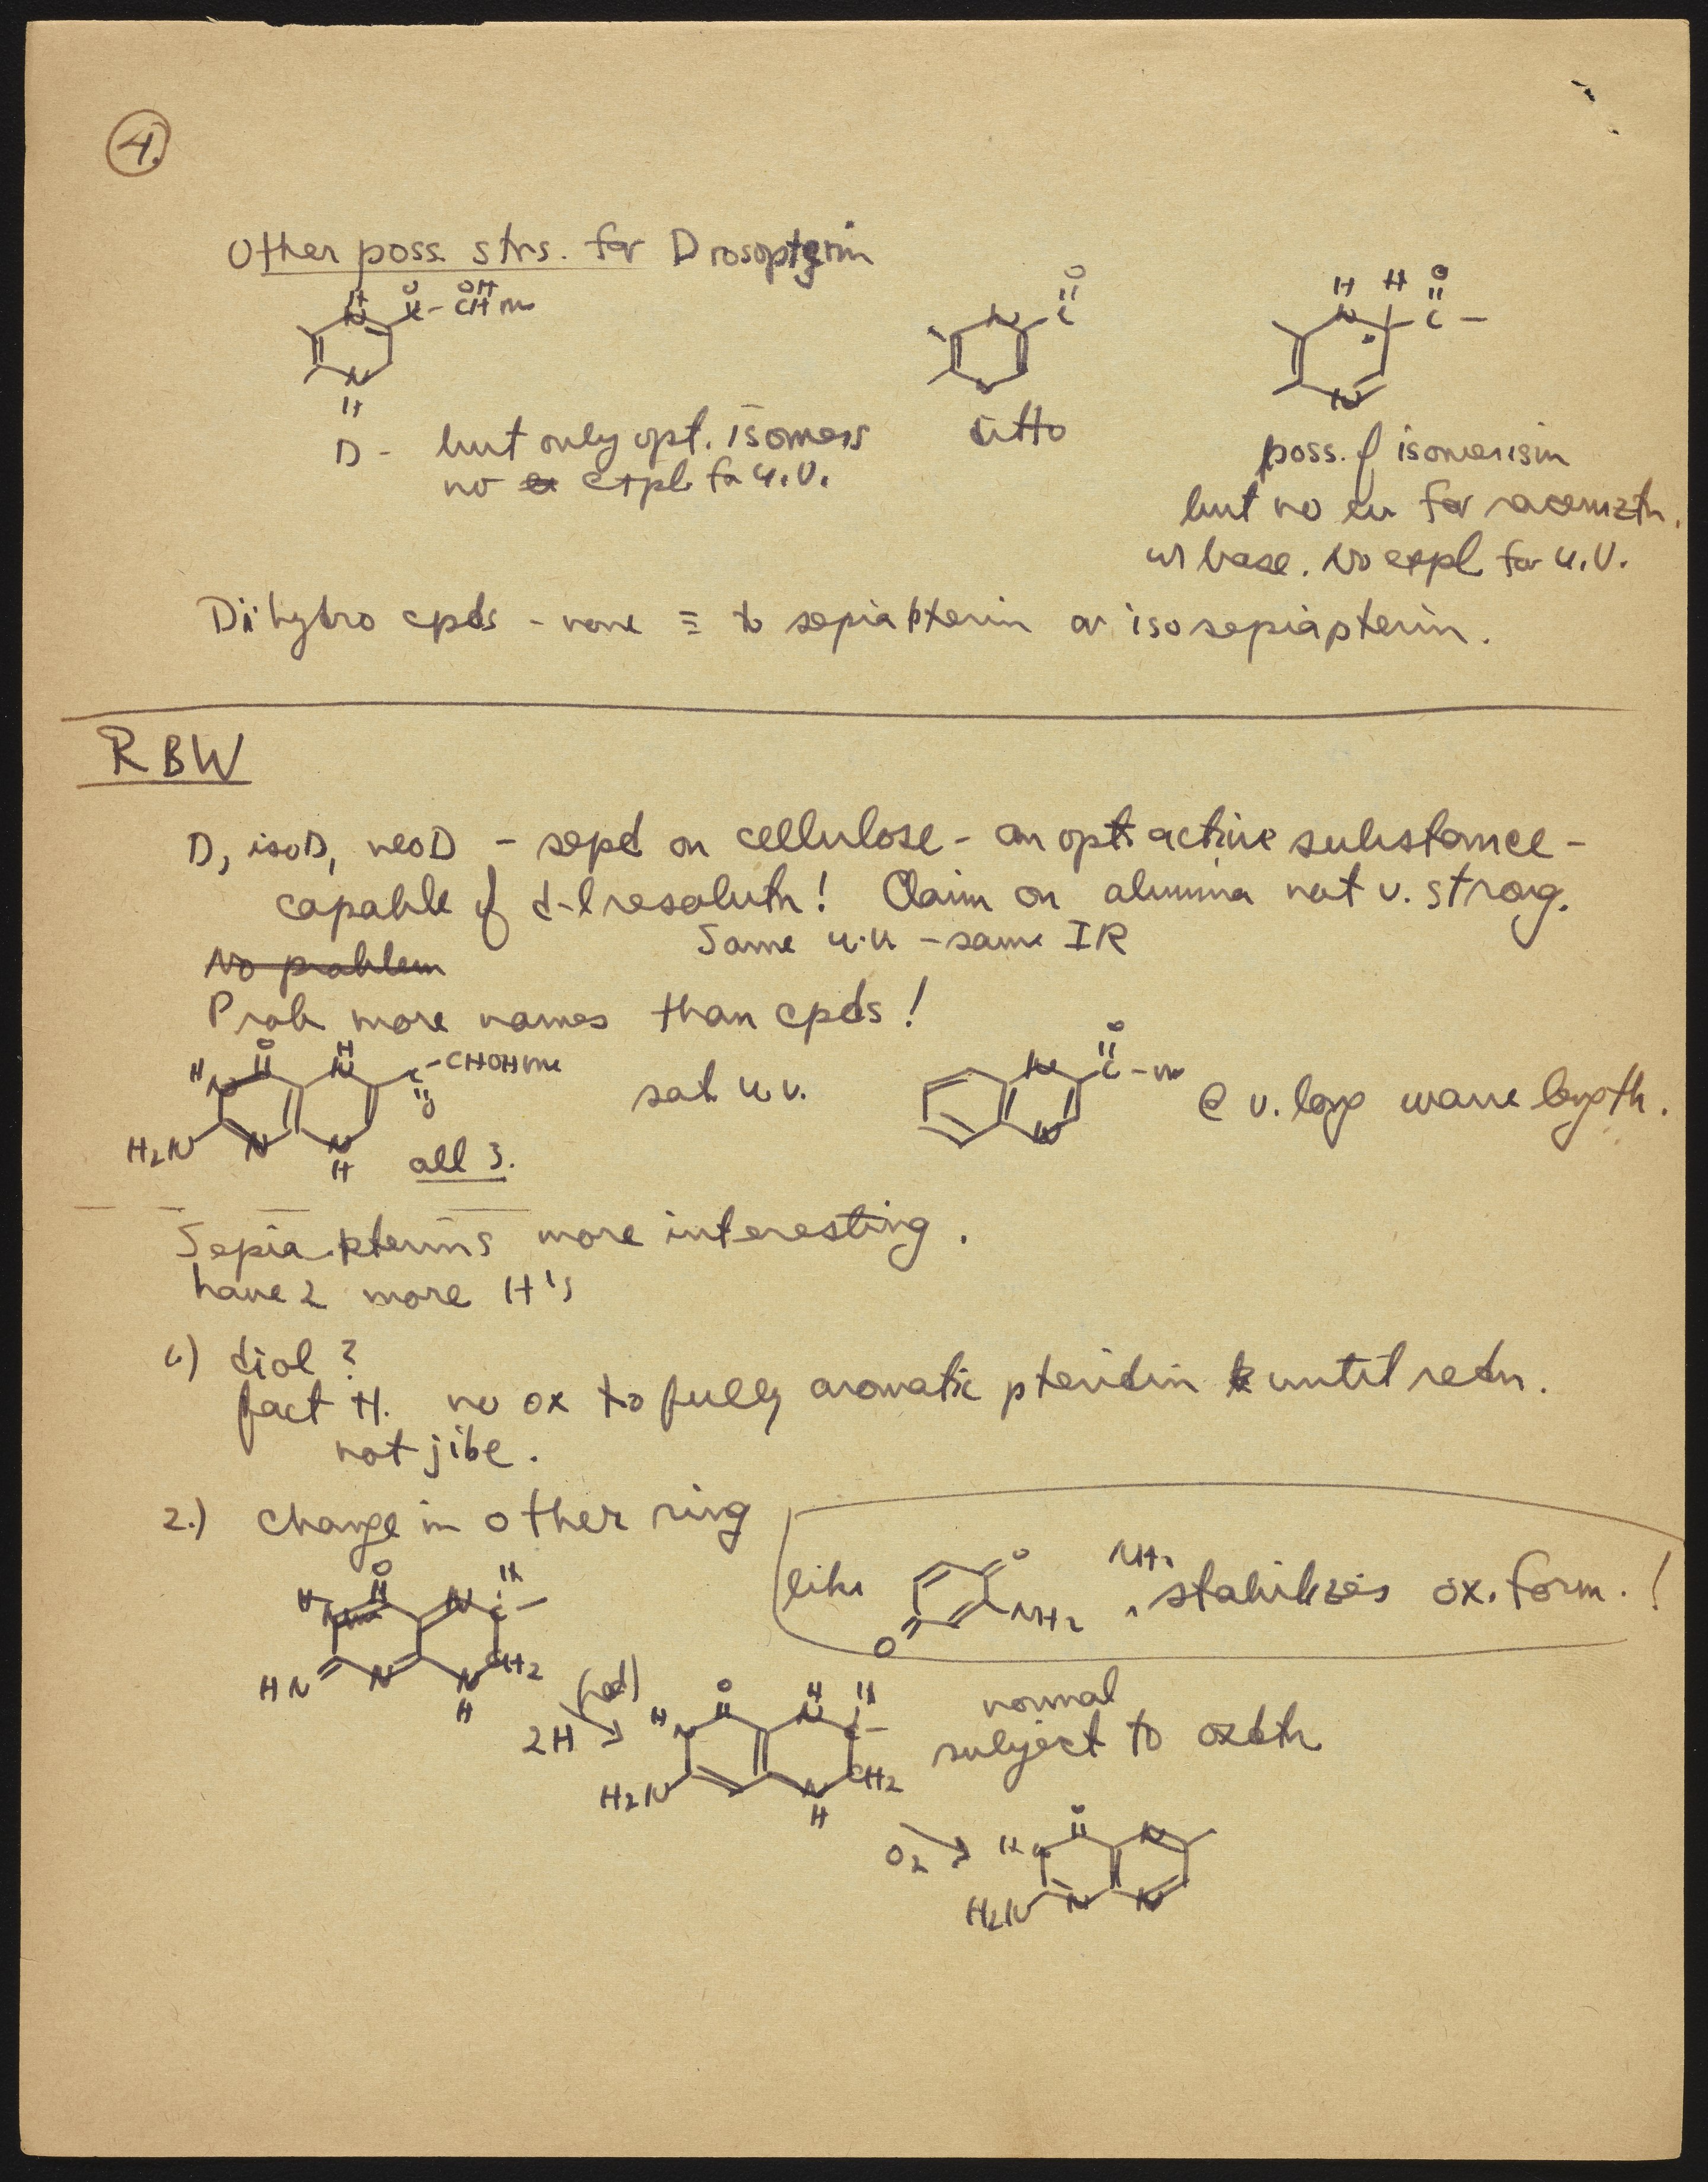 4.
Other poss. strs. for Drosopterin
H N O C - OH CH Me
N H
N O C
N
H N H O C -
N
D - but only opt. isomers
no expl for u.v.
ditto
poss. of isomerism
but no for racemztn.
w base. No expl for u.v.
Dihydro cpds - none ≡ to sepiapterin or isosepiapterin.
RBW
D, isoD, neoD - sepd on cellulose - an opt. active substance -
capable of d-l resolutn! Claim on alumina not v. strong.
Same u.v - same IR
No problem
Prob more names than cpds!
H N O H N C - CHOHMe O
H2N N N H all 3.
sat u.v.
N C O - Me
N
@ v. long wave length.
Sepiapterins more interesting.
have 2 more H's
1.) diol?
fact H. no ox to fully aromatic pteridin until redn.
not jibe.
2.) Change in other ring
like O O NH2 NH2 stabilizes ox. form.!
H N O N H C -
HN N N H CH2
2H (red)
H N O H N H C -
H2N N H CH2
normal
subject to oxdtn
O2
H N O N
H2N N N